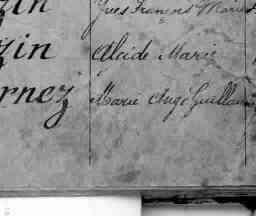 zin Yves François Marie
zin Alcide Marie
rnez Marie Ange Guillau